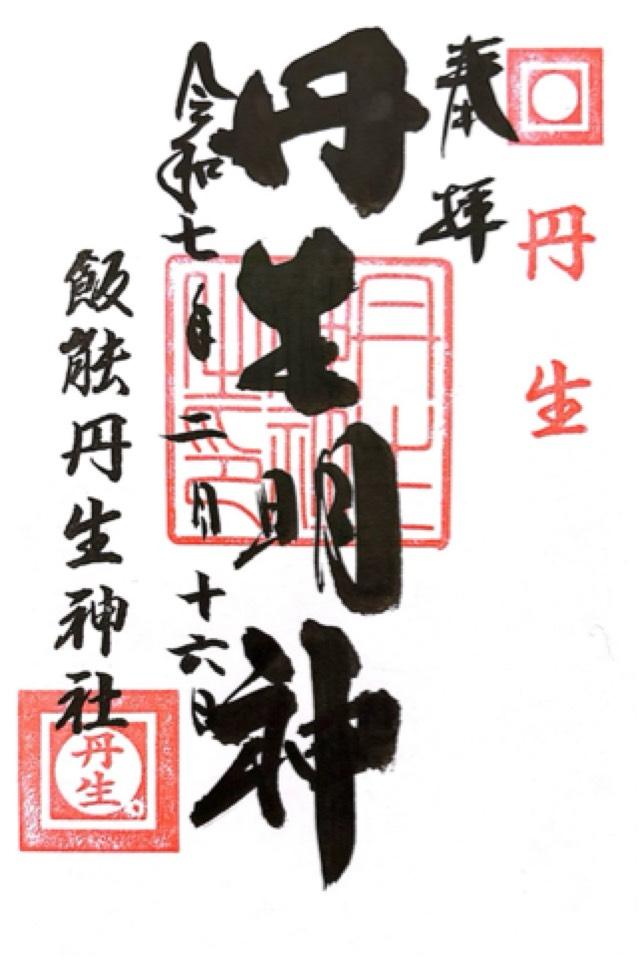 丹生
奉拝
丹生明神
令和七年二月十六日
飯能丹生神社
丹生